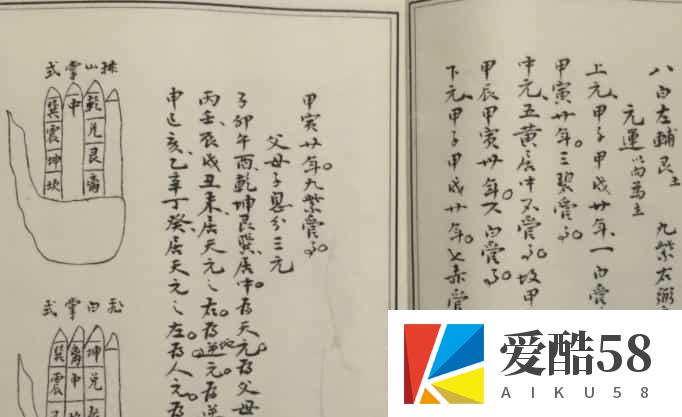 八白左輔艮土 九紫右弼
元運以為主
上元甲子甲戌廿年一白管
甲寅廿年三碧管
中元五黃居中不管故甲
甲辰甲寅廿年六白管
下元甲子甲戌廿年七赤管
甲寅廿年九紫管
父母子息分三元
子卯午酉乾坤艮巽居中為天元為父母
丙壬辰戌丑未居天元之右為地元為逆
申巳亥乙辛丁癸居天元之左為人元為
挨山掌式
乾兌艮離
中
巽震坤坎
飛白掌式
坤兌乾
離中
巽震
爱酷58
AIKU58